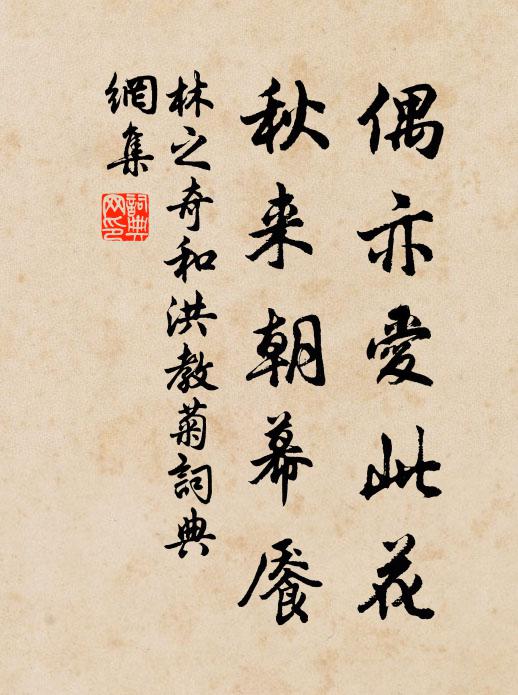 偶亦愛此花
秋来朝幕饜
林之奇和洪教菊詞典
網集
詞典網印